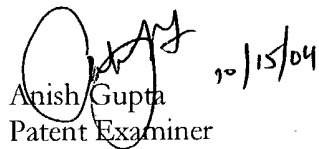 10/15/04
Anish Gupta
Patent Examiner